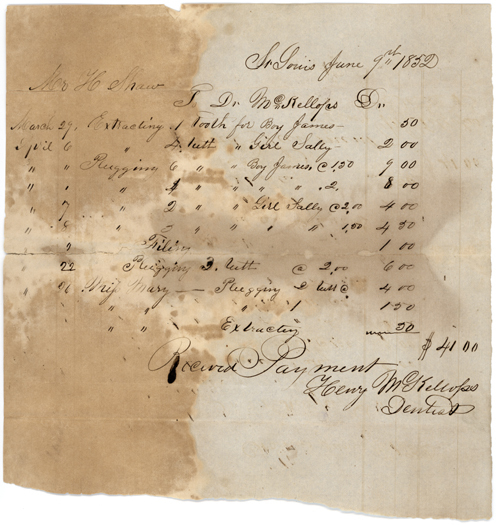 St Louis June 9th 1852
Mr H Shaw
To Dr McKellops Dr
March 29, Extracting 1 tooth for Boy James 50
April 6 " 4 teeth " Girl Sally 2 00
" " Plugging 6 " " Boy James @ 1,50 9 00
" " " 4 " " " " 2, 8 00
" 7 " 2 " " Girl Sally @ 2,00 4 00
" 8 " 3 " " " " 1,50 4 50
" 9 Filing 1 00
" 22 Plugging 3 teeth @ 2,00 6 00
" 26 Miss Mary Plugging 2 teeth @ 4 00
" " " " 1 1 50
Extracting 50
$ 41 00
Received Payment
Henry McKellops
Dentist